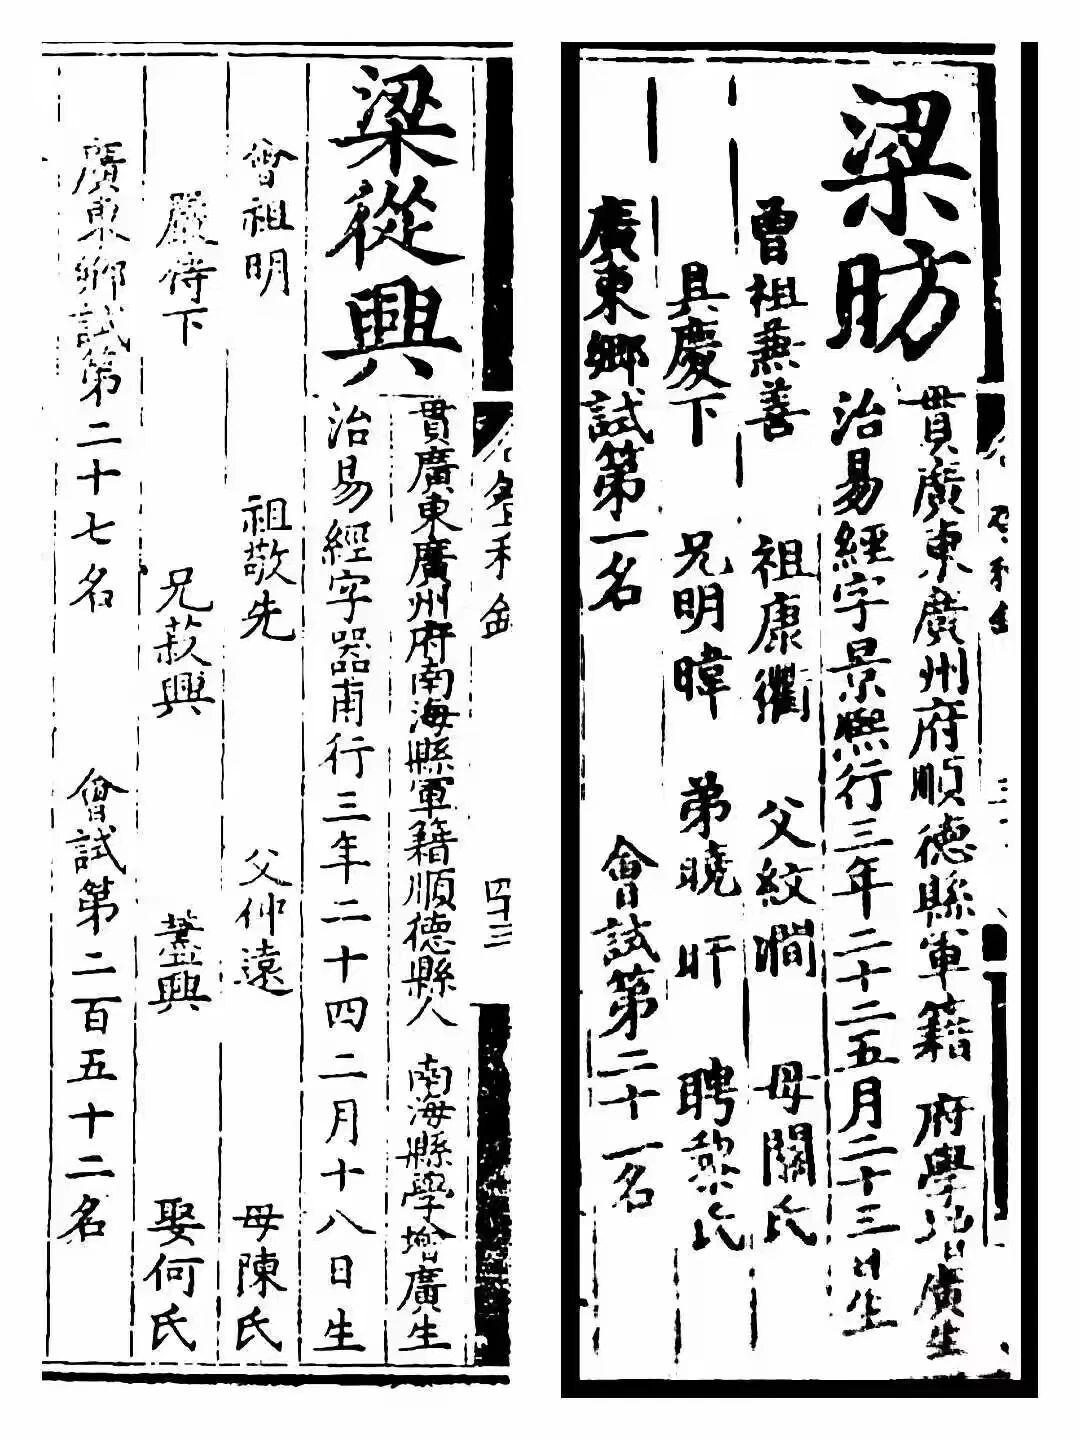 梁昉
貫廣東廣州府順德縣軍籍 府學增廣生
治易經字景熙行三年二十二五月二十三日生
曾祖兼善 祖康衢 父紋澗 母關氏
具慶下 兄明暐 弟曉 旰 聘黎氏
廣東鄉試第一名 會試第二十一名
四十三
梁從興
貫廣東廣州府南海縣軍籍順德縣人 南海縣學增廣生
治易經字器甫行三年二十四二月十八日生
曾祖明 祖敬先 父仲遠 母陳氏
嚴侍下 兄菽興 藎興 娶何氏
廣東鄉試第二十七名 會試第二百五十二名